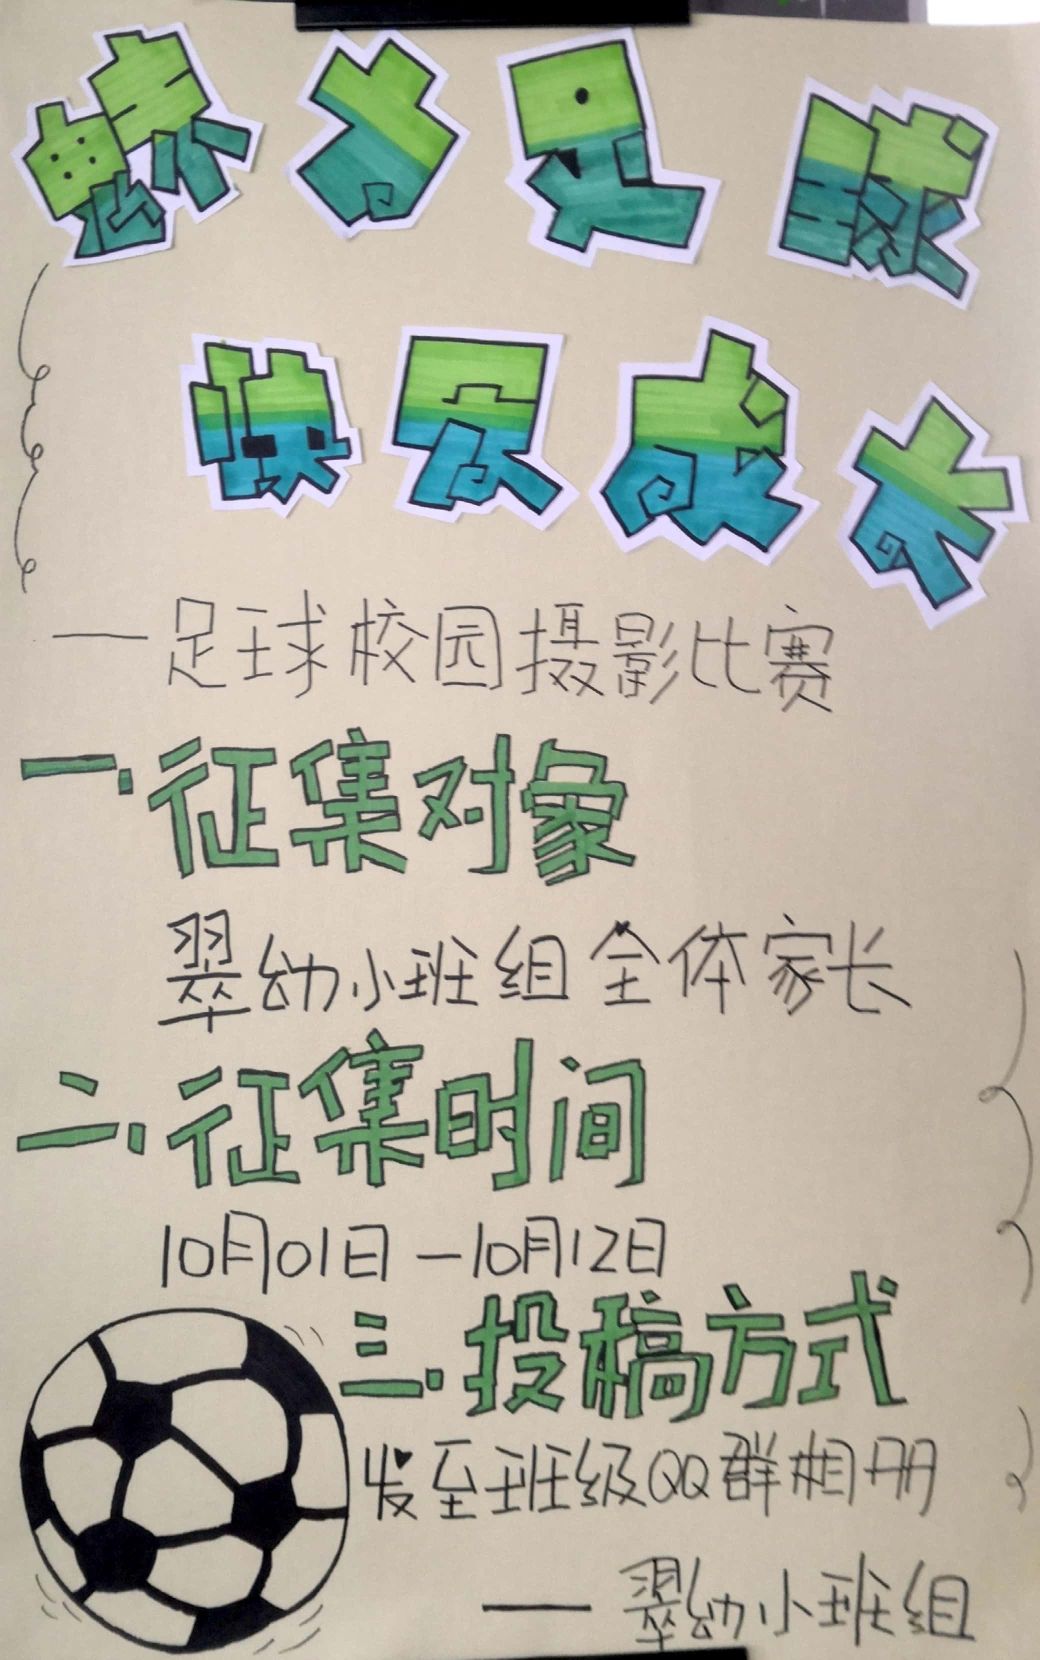 魅力足球
快乐成长
—足球校园摄影比赛
一.征集对象
翠幼小班组全体家长
二.征集时间
10月01日—10月12日
三.投稿方式
发至班级QQ群相册
——翠幼小班组